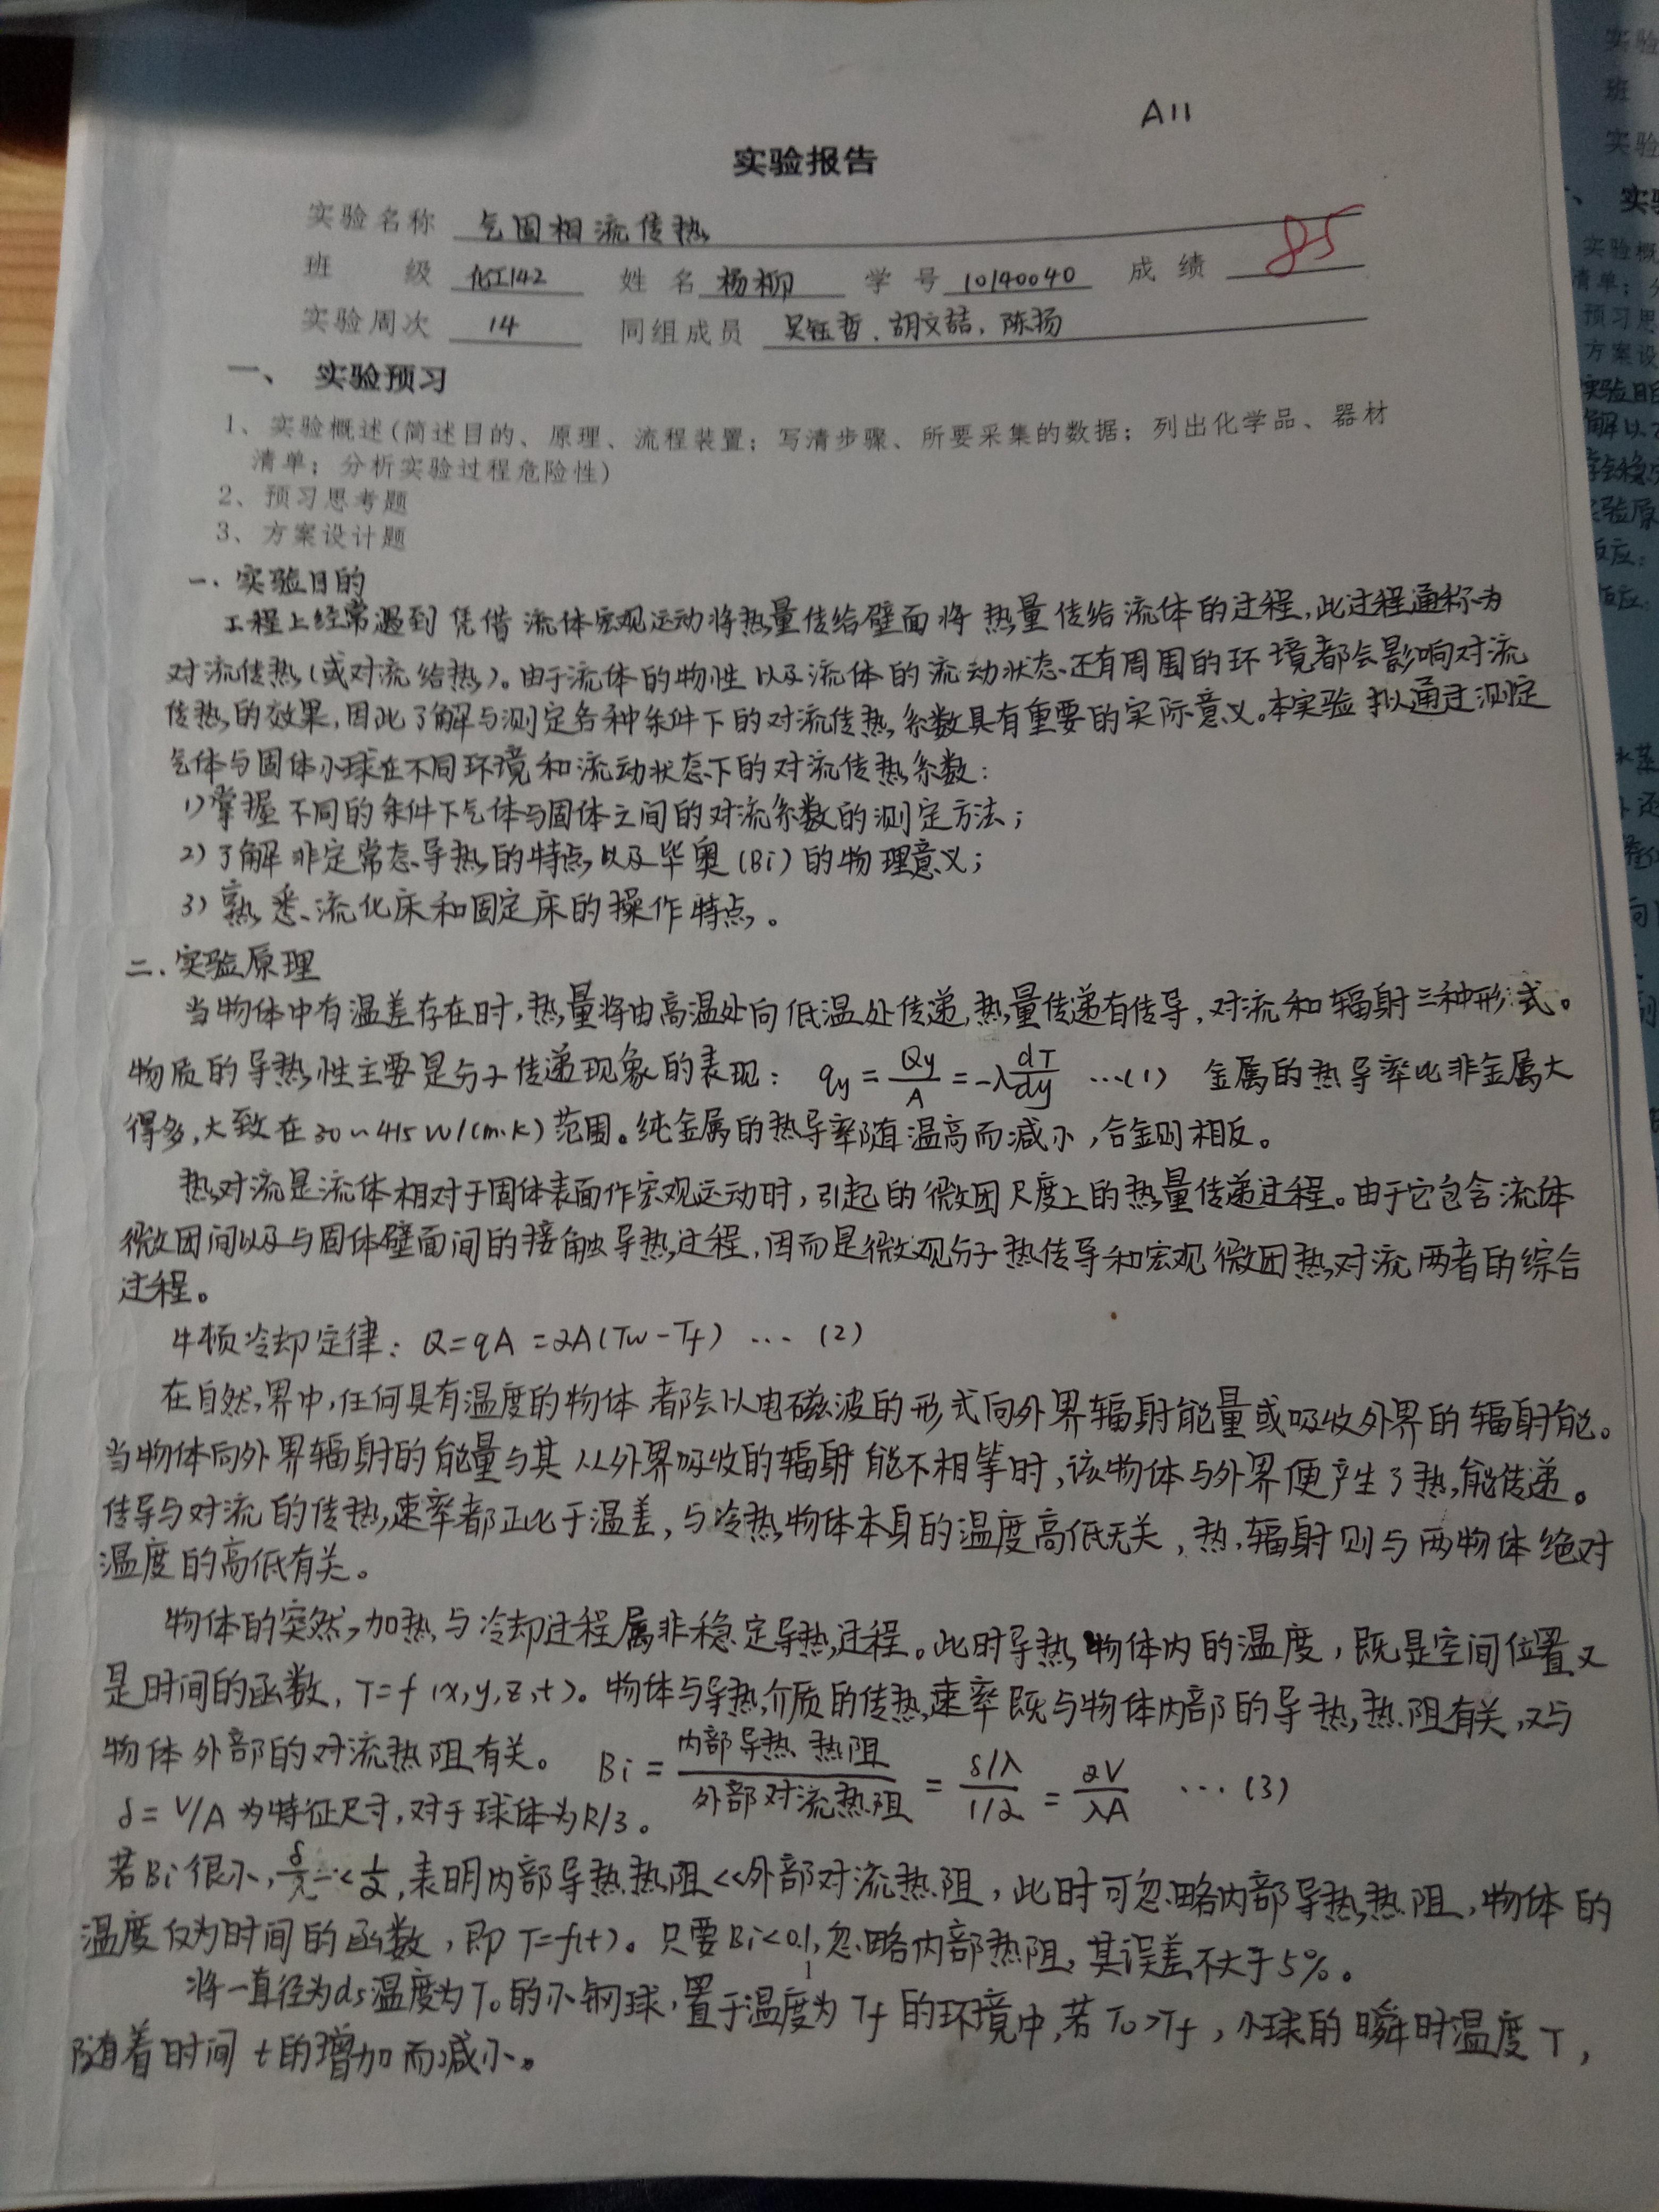 A11
实验报告
实验名称 气固相流传热
班 级 化工142 姓名 杨柳 学号 10140040 成绩 85
实验周次 14 同组成员 吴钰哲、胡文喆、陈扬
一、 实验预习
1、实验概述(简述目的、原理、流程装置；写清步骤、所要采集的数据；列出化学品、器材
清单；分析实验过程危险性)
2、预习思考题
3、方案设计题
一. 实验目的
工程上经常遇到凭借流体宏观运动将热量传给壁面将热量传给流体的过程,此过程通称为
对流传热(或对流给热)。由于流体的物性以及流体的流动状态还有周围的环境都会影响对流
传热的效果,因此了解与测定各种条件下的对流传热系数具有重要的实际意义。本实验拟通过测定
气体与固体小球在不同环境和流动状态下的对流传热系数:
1)掌握不同的条件下气体与固体之间的对流系数的测定方法;
2)了解非定常态导热的特点以及毕奥(Bi)的物理意义;
3)熟悉流化床和固定床的操作特点。
二. 实验原理
当物体中有温差存在时,热量将由高温处向低温处传递,热量传递有传导、对流和辐射三种形式。
物质的导热性主要是分子传递现象的表现: qy = Qy/A = -λ dT/dy …(1) 金属的热导率比非金属大
得多,大致在30~415 W/(m·K)范围。纯金属的热导率随温高而减小,合金则相反。
热对流是流体相对于固体表面作宏观运动时,引起的微团尺度上的热量传递过程。由于它包含流体
微团间以及与固体壁面间的接触导热过程,因而是微观分子热传导和宏观微团热对流两者的综合
过程。
牛顿冷却定律: Q=qA=αA(Tw-Tf) … (2)
在自然界中,任何具有温度的物体都会以电磁波的形式向外界辐射能量或吸收外界的辐射能。
当物体向外界辐射的能量与其从外界吸收的辐射能不相等时,该物体与外界便产生了热能传递。
传导与对流的传热速率都正比于温差,与冷热物体本身的温度高低无关,热辐射则与两物体绝对
温度的高低有关。
物体的突然加热与冷却过程属非稳定导热过程。此时导热物体内的温度,既是空间位置又
是时间的函数, T=f(x,y,z,t)。物体与导热介质的传热速率既与物体内部的导热热阻有关,又与
物体外部的对流热阻有关。 Bi = 内部导热热阻/外部对流热阻 = (δ/λ)/(1/α) = αV/λA … (3)
δ=V/A为特征尺寸,对于球体为R/3。
若Bi很小,δ/λ<<1/α,表明内部导热热阻<<外部对流热阻,此时可忽略内部导热热阻,物体的
温度仅为时间的函数,即T=f(t)。只要Bi<0.1,忽略内部热阻,其误差不大于5%。
1
将一直径为ds温度为T₀的小钢球,置于温度为Tf的环境中,若T₀>Tf,小球的瞬时温度T,
随着时间t的增加而减小。